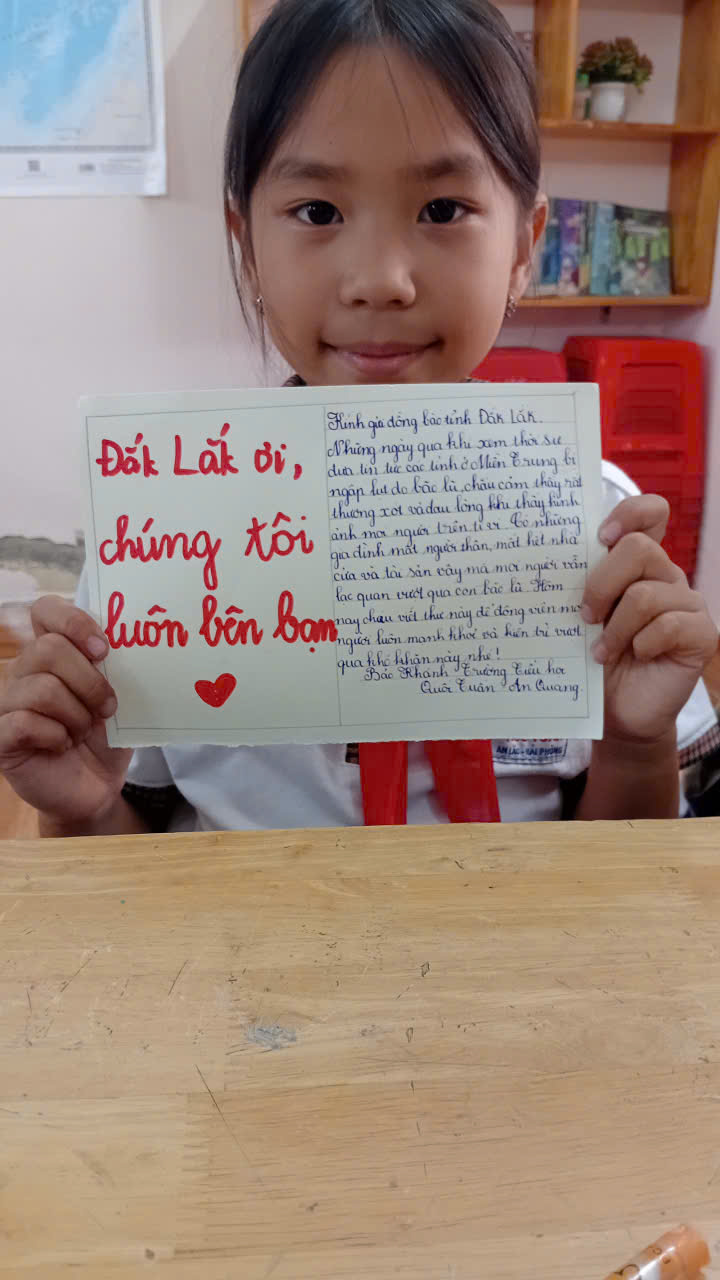 Đắk Lắk ơi,
chúng tôi
luôn bên bạn
Kính gửi đồng bào tỉnh Đắk Lắk.
Những ngày qua khi xem thời sự
đưa tin tức các tỉnh ở Miền Trung bị
ngập lụt do bão lũ, cháu cảm thấy rất
thương xót và đau lòng khi thấy hình
ảnh mọi người trên ti vi. Có những
gia đình mất người thân, mất hết nhà
cửa và tài sản vậy mà mọi người vẫn
lạc quan vượt qua cơn bão lũ. Hôm
nay cháu viết thư này để động viên mọi
người luôn mạnh khoẻ và kiên trì vượt
qua khó khăn này nhé!
Bảo Khánh Trường Tiểu học
Quốc Tuấn - An Quang.
AN LÃO - HẢI PHÒNG